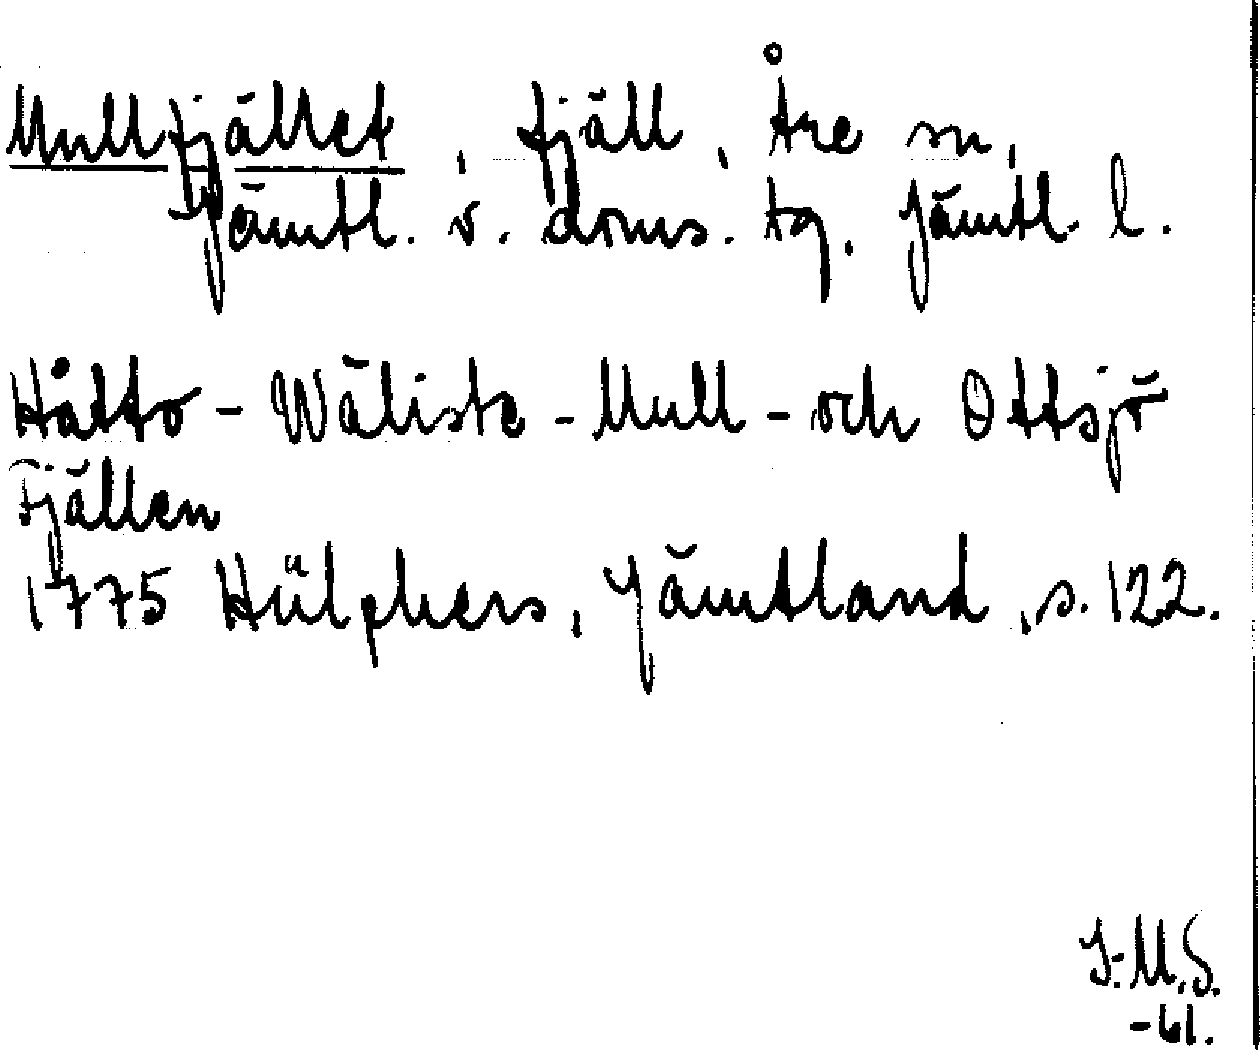 Mullfjället, fjäll, Åre sn,
Jämtl. v. doms. tg. Jämtl. l.
Håtto - Wäliste - Mull - och Ottsjö
Fjällen
1775 Hülphers, Jämtland, s. 122.
I.M.S.
-61.